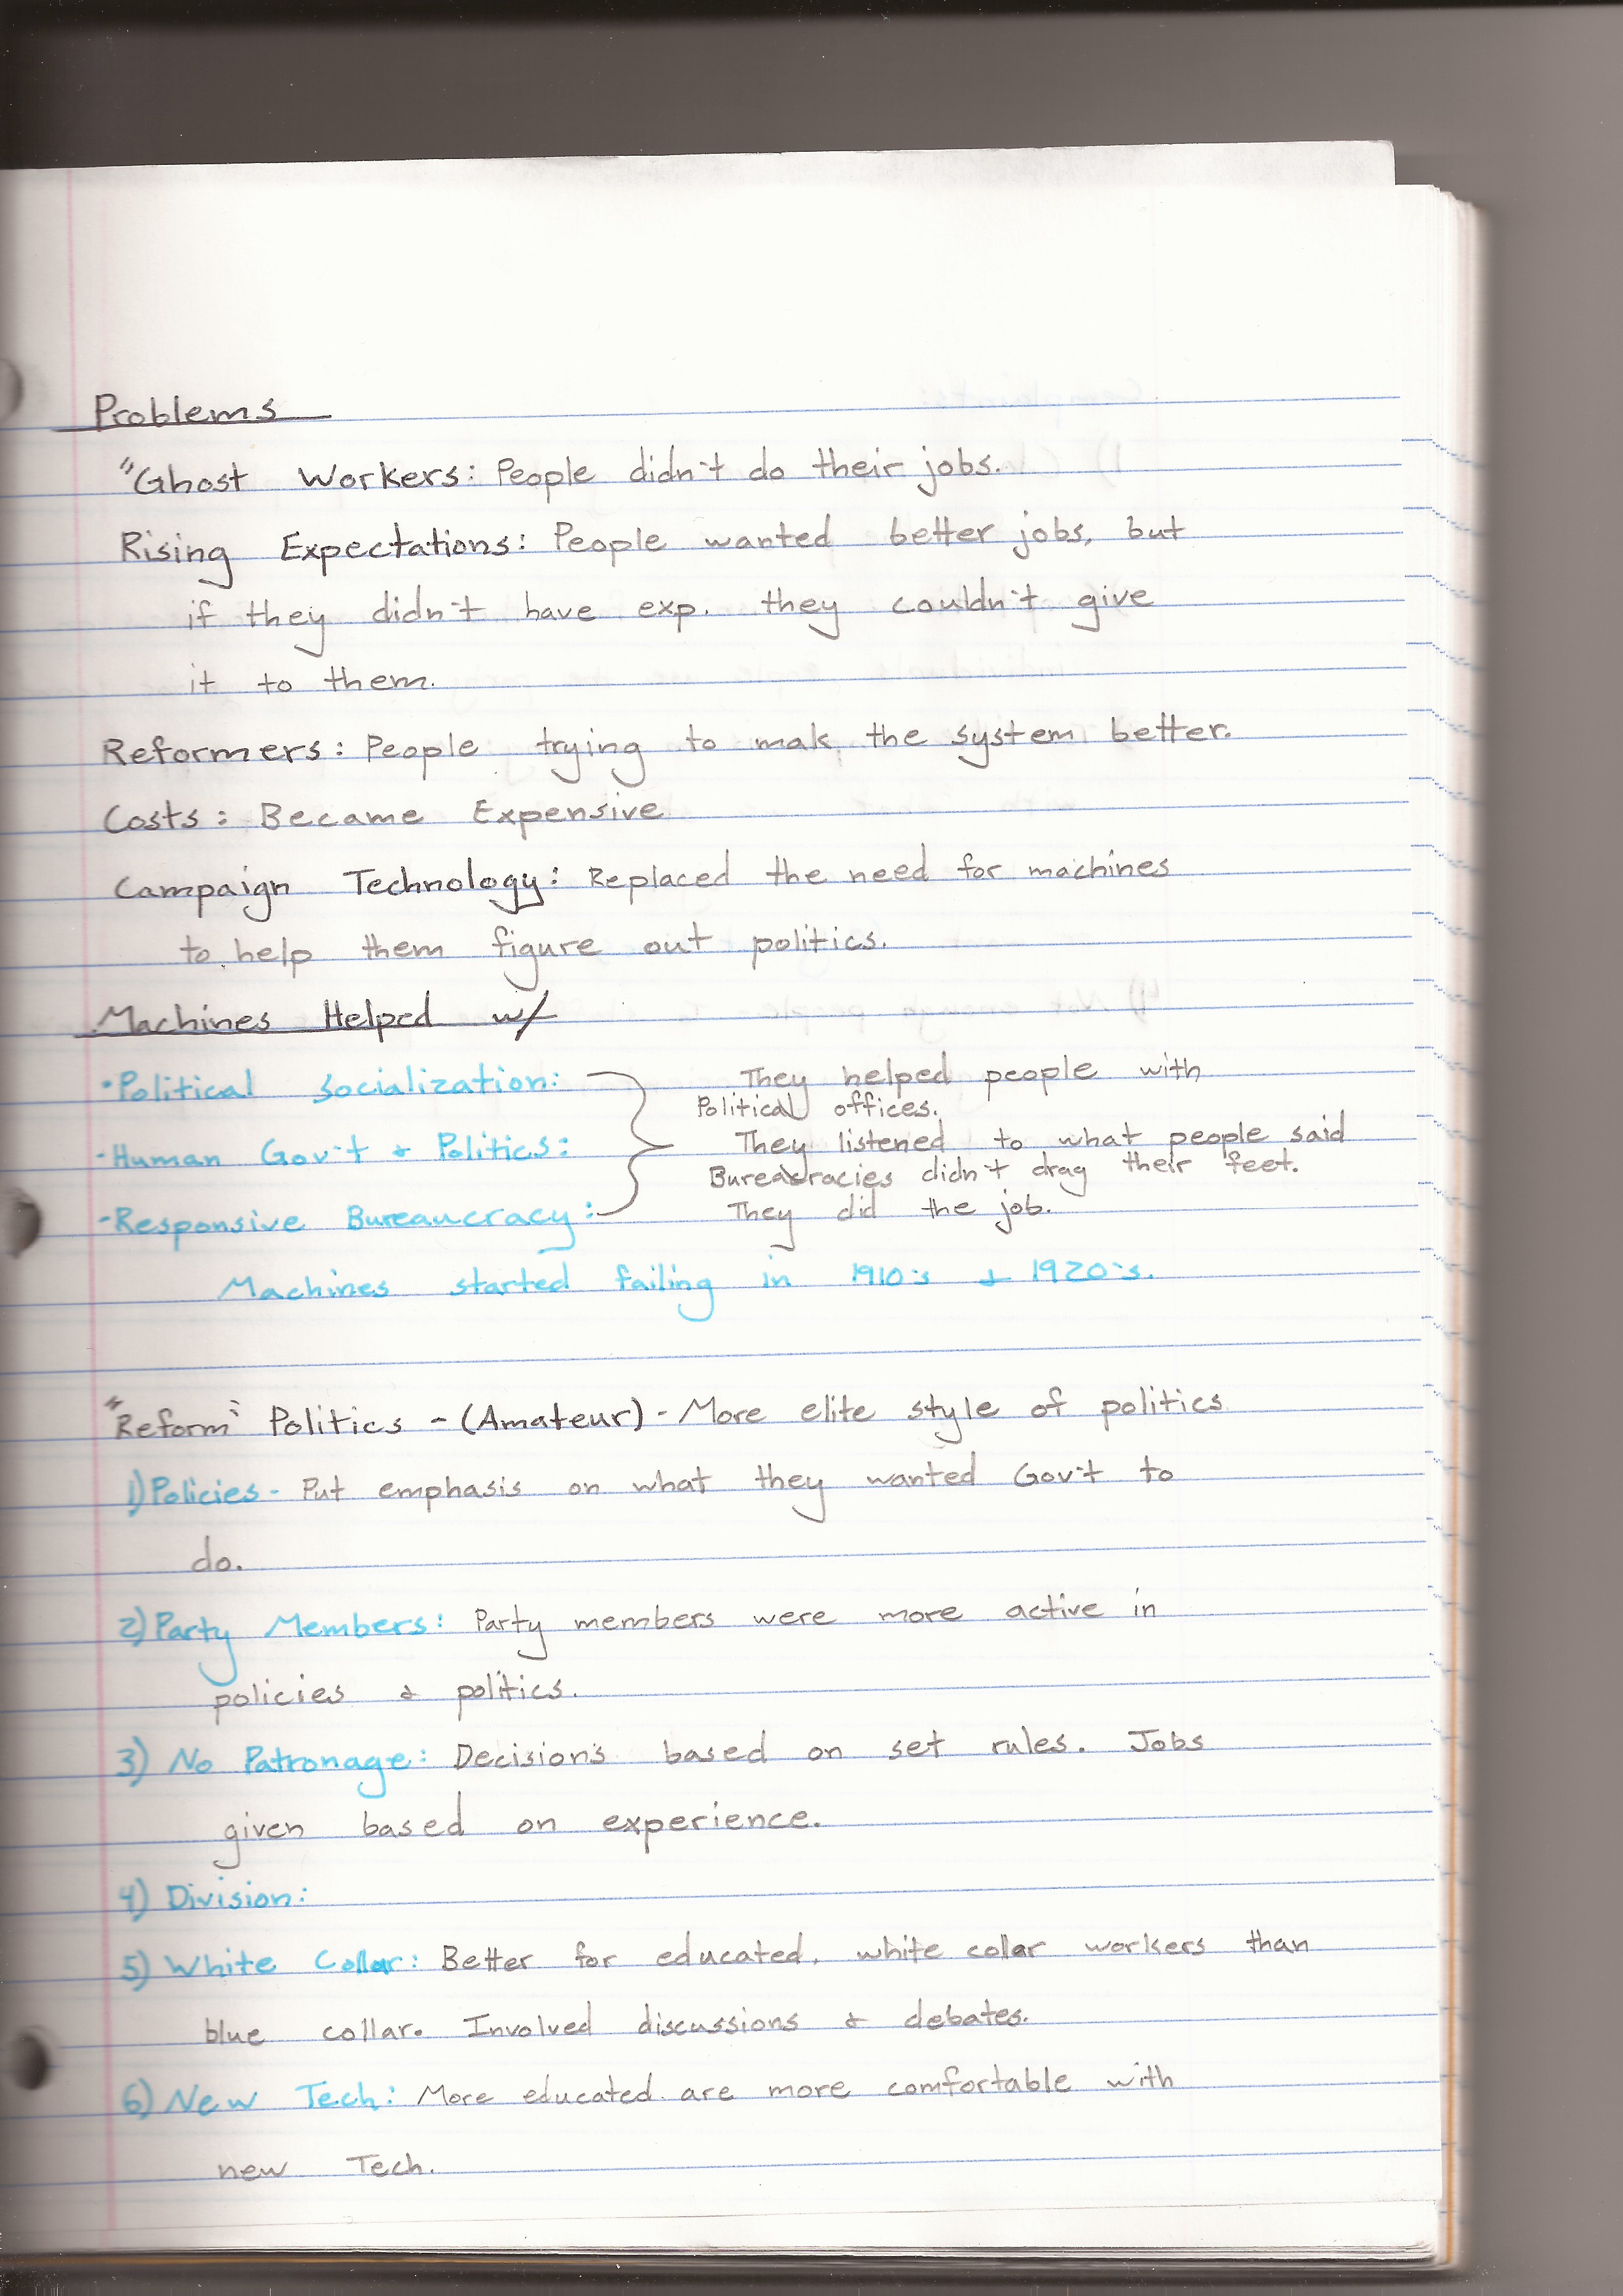 Problems
"Ghost Workers: People didn't do their jobs.
Rising Expectations: People wanted better jobs, but
if they didn't have exp. they couldn't give
it to them.
Reformers: People trying to mak the system better.
Costs: Became Expensive
Campaign Technology: Replaced the need for machines
to help them figure out politics.
Machines Helped w/
• Political Socialization: They helped people with
Political offices.
- Human Gov't & Politics: They listened to what people said
Bureacracies didn't drag their feet.
- Responsive Bureaucracy: They did the job.
Machines started failing in 1910's & 1920's.
"Reform" Politics - (Amateur) - More elite style of politics
1) Policies - Put emphasis on what they wanted Gov't to
do.
2) Party Members: Party members were more active in
policies & politics.
3) No Patronage: Decisions based on set rules. Jobs
given based on experience.
4) Division:
5) White Collar: Better for educated, white collar workers than
blue collar. Involved discussions & debates.
6) New Tech: More educated are more comfortable with
new Tech.